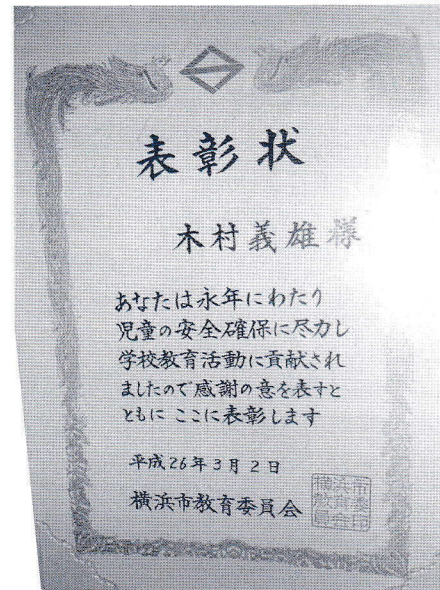 表彰状
木村義雄様
あなたは永年にわたり
児童の安全確保に尽力し
学校教育活動に貢献され
ましたので感謝の意を表すと
ともに ここに表彰します
平成26年3月2日
横浜市教育委員会
横浜市
教育委
員会印